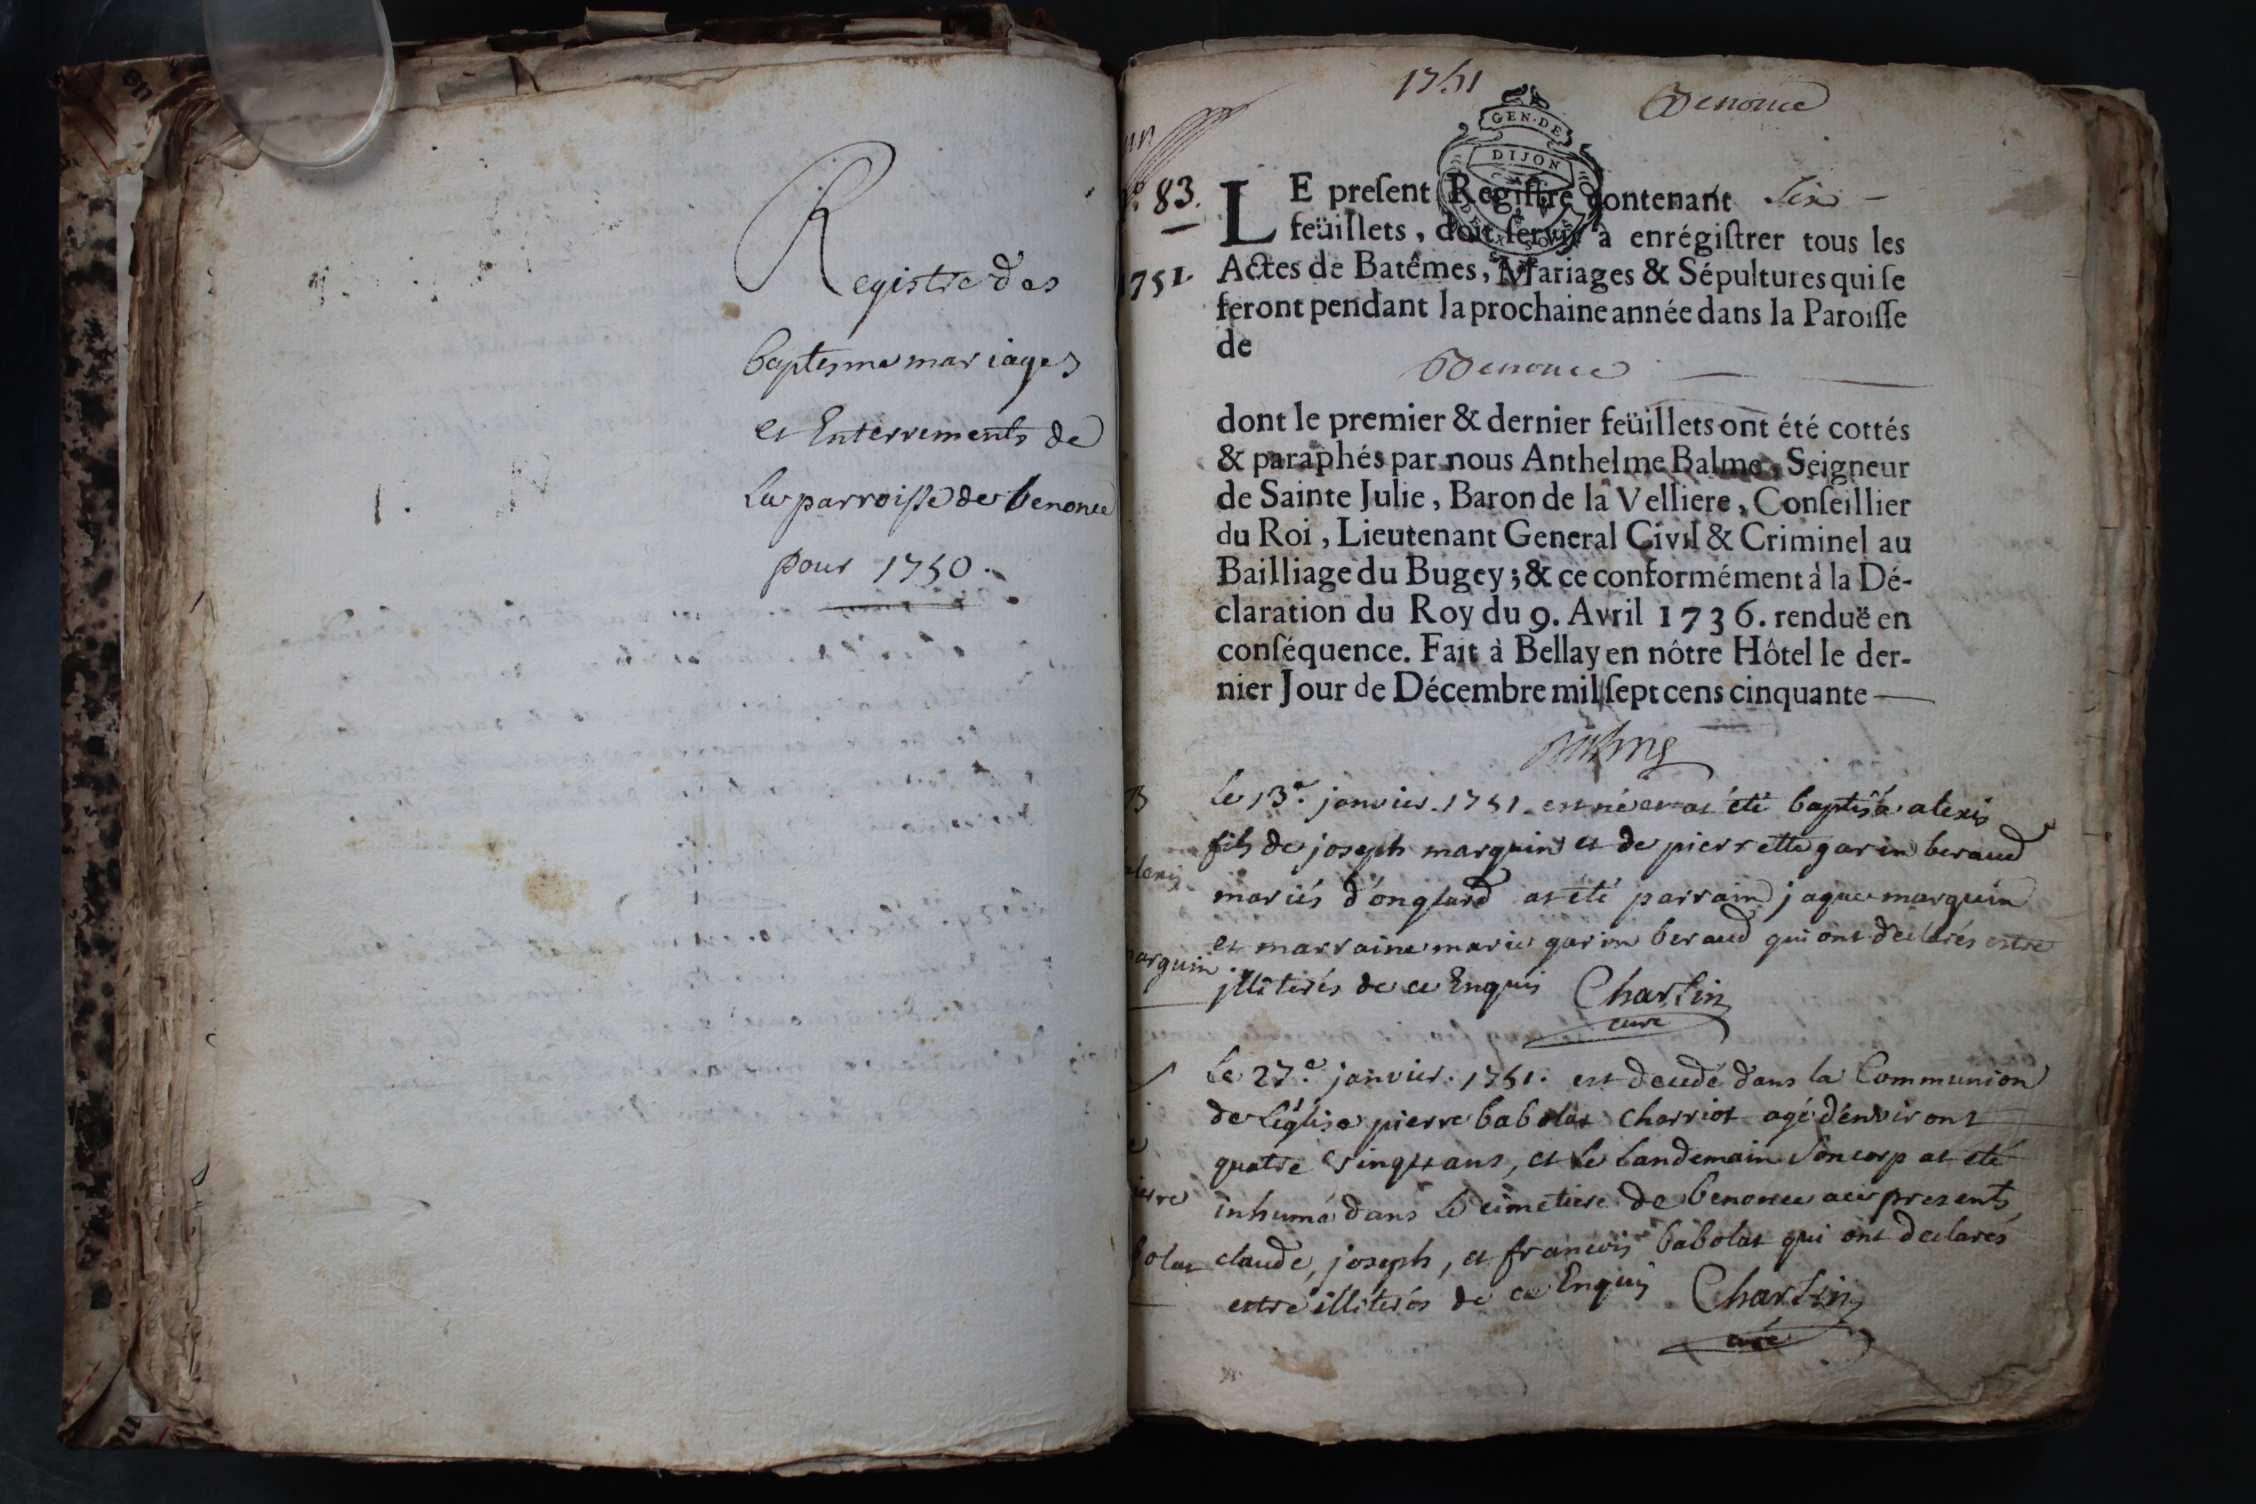 Registre des
baptesme mariages
et Enterrements de
La parroisse de benonce
pour 1750.
1751
Benonce
GEN. DE
DIJON
un
N.º 83.
1751.
LE preſent Regiſtre contenant Six
feüillets, doit ſervir à enrégiſtrer tous les
Actes de Batêmes, Mariages & Sépultures qui ſe
feront pendant la prochaine année dans la Paroiſſe
de
Benonce
dont le premier & dernier feüillets ont été cottés
& paraphés par nous Anthelme Balme, Seigneur
de Sainte Julie, Baron de la Velliere, Conſeillier
du Roi, Lieutenant General Civil & Criminel au
Bailliage du Bugey; & ce conformément à la Dé-
claration du Roy du 9. Avril 1736. renduë en
conſéquence. Fait à Bellay en nôtre Hôtel le der-
nier Jour de Décembre mil ſept cens cinquante
Balme
B
alexis
marquin
le 13.e janvier. 1751. est né et at été baptisé alexis
fils de joseph marquin et de pierrette garin beraud
mariés d'onglard at été parrain jaque marquin
et marraine marie garin beraud qui ont declarés estre
jlliterés de ce Enquis Charlin
curé
Le 27.e janvier. 1751. est decedé dans la Communion
de L'église pierre babolat charriot agé d'environt
quatre vingts ans, et le landemain son corp at eté
inhumé dans le cimetiere de benonce acis presents
claude, joseph, et francois babolat qui ont declarés
estre illiterés de ce Enquis Charlin
curé